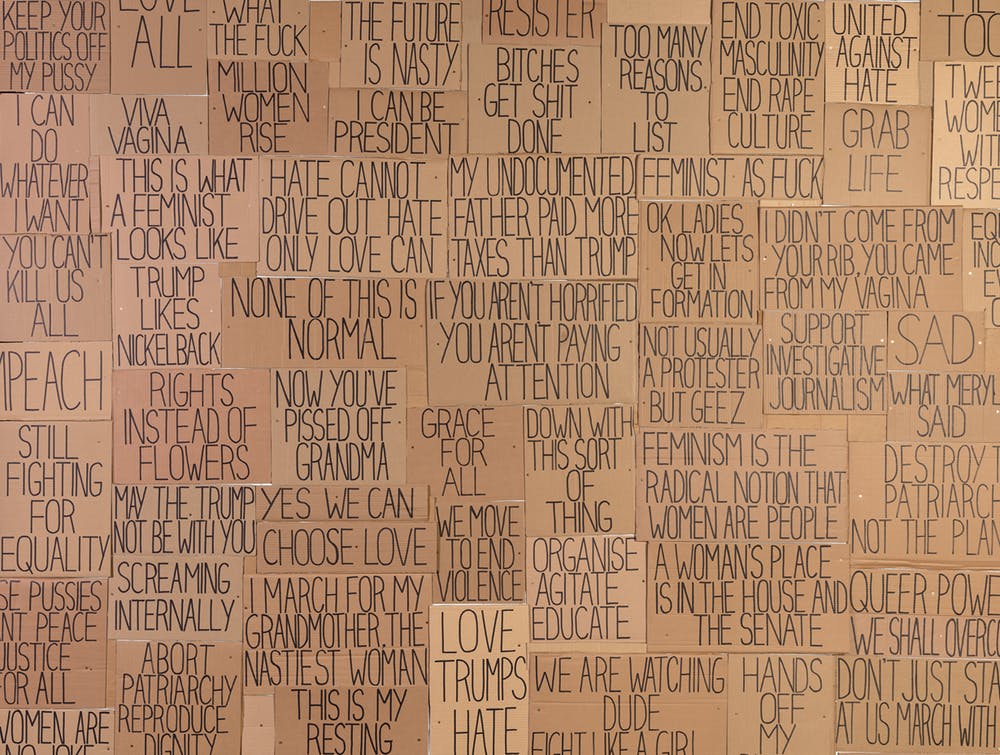 KEEP YOUR
POLITICS OFF
MY PUSSY
LOVE
ALL
WHAT
THE FUCK
THE FUTURE
IS NASTY
RESISTER
BITCHES
GET SHIT
DONE
TOO MANY
REASONS
TO
LIST
END TOXIC
MASCULINITY
END RAPE
CULTURE
UNITED
AGAINST
HATE
TOO
MILLION
WOMEN
RISE
I CAN BE
PRESIDENT
I CAN
DO
WHATEVER
I WANT
VIVA
VAGINA
GRAB
LIFE
THIS IS WHAT
A FEMINIST
LOOKS LIKE
HATE CANNOT
DRIVE OUT HATE
ONLY LOVE CAN
MY UNDOCUMENTED
FATHER PAID MORE
TAXES THAN TRUMP
FEMINIST AS FUCK
OK LADIES
NOW LETS
GET IN
FORMATION
I DIDN'T COME FROM
YOUR RIB, YOU CAME
FROM MY VAGINA
YOU CAN'T
KILL US
ALL
TRUMP
LIKES
NICKELBACK
NONE OF THIS IS
NORMAL
IF YOU AREN'T HORRIFIED
YOU AREN'T PAYING
ATTENTION
NOT USUALLY
A PROTESTER
BUT GEEZ
SUPPORT
INVESTIGATIVE
JOURNALISM
SAD
MPEACH
RIGHTS
INSTEAD OF
FLOWERS
NOW YOU'VE
PISSED OFF
GRANDMA
GRACE
FOR
ALL
DOWN WITH
THIS SORT
OF
THING
WHAT MERYL
SAID
STILL
FIGHTING
FOR
EQUALITY
FEMINISM IS THE
RADICAL NOTION THAT
WOMEN ARE PEOPLE
DESTROY
PATRIARCH
NOT THE PLAN
MAY THE TRUMP
NOT BE WITH YOU
YES WE CAN
CHOOSE LOVE
WE MOVE
TO END
VIOLENCE
ORGANISE
AGITATE
EDUCATE
A WOMAN'S PLACE
IS IN THE HOUSE AND
THE SENATE
QUEER POWE
WE SHALL OVERCO
SCREAMING
INTERNALLY
PUSSIES
PEACE
JUSTICE
FOR ALL
I MARCH FOR MY
GRANDMOTHER, THE
NASTIEST WOMAN
LOVE
TRUMPS
HATE
ABORT
PATRIARCHY
REPRODUCE
DIGNITY
THIS IS MY
RESTING
WE ARE WATCHING
DUDE
FIGHT LIKE A GIRL
HANDS
OFF
MY
DON'T JUST STA
AT US MARCH WITH
WOMEN ARE